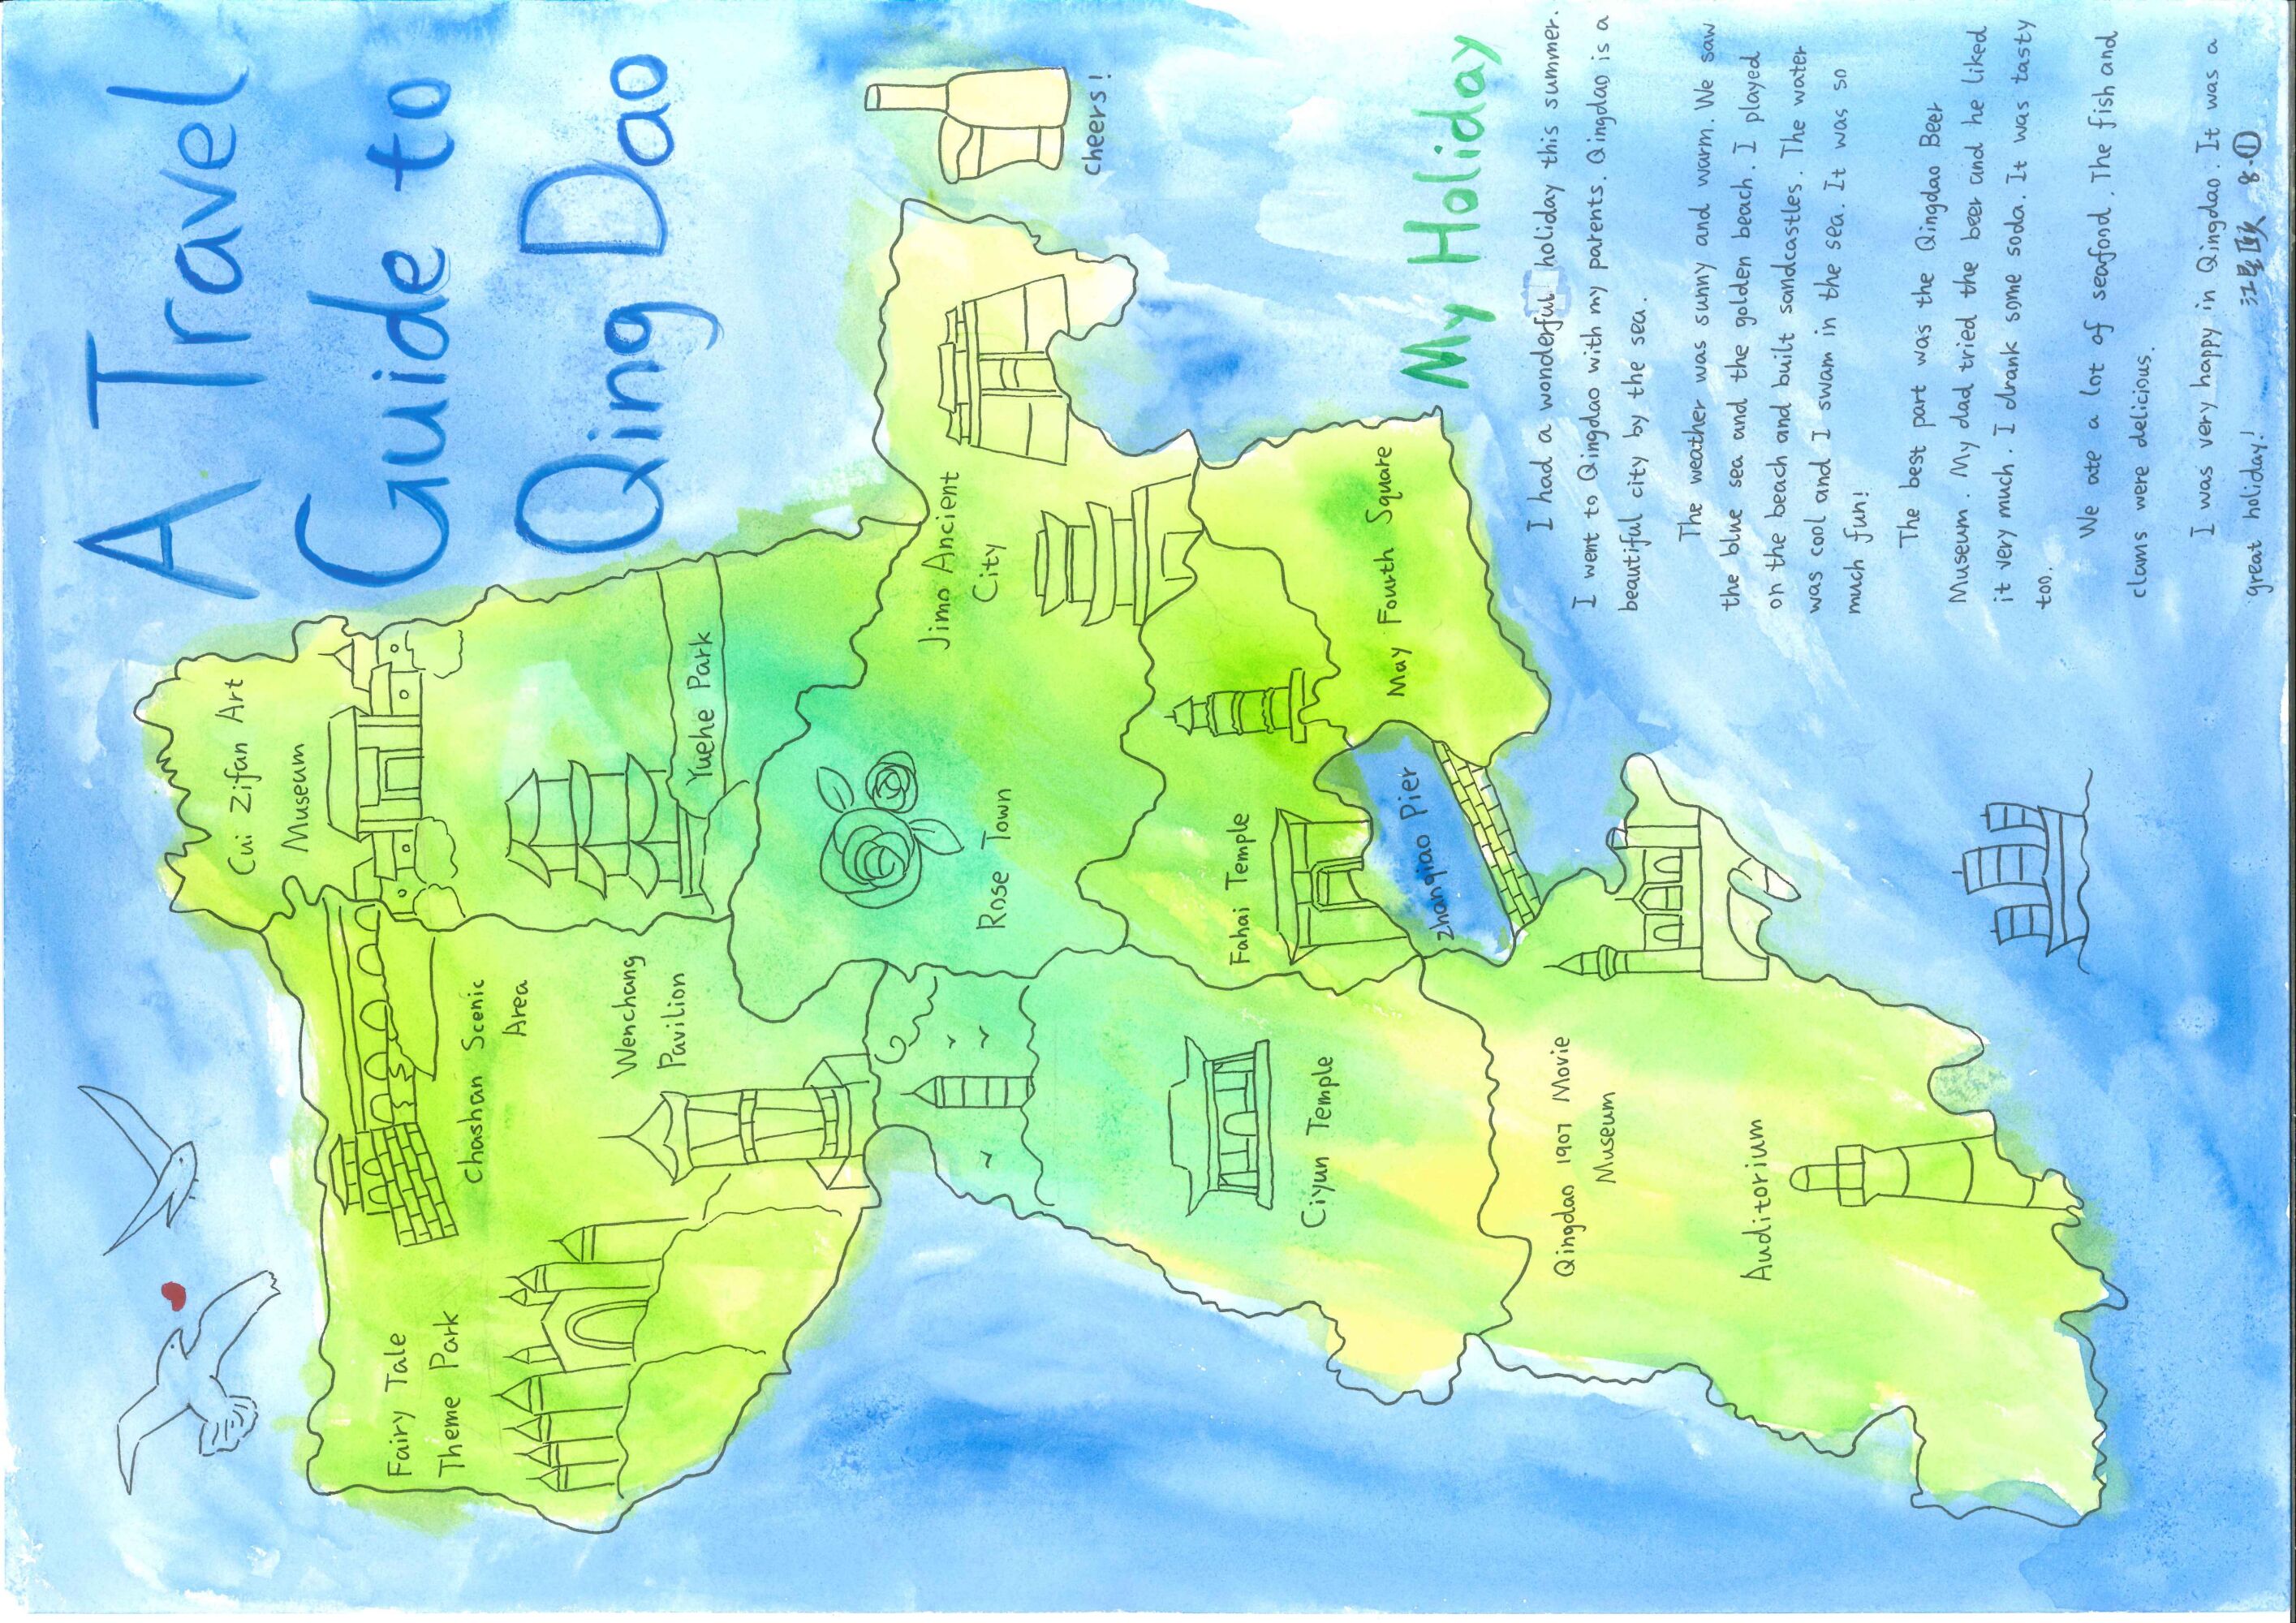 A Travel
Guide to
Qing Dao
Cui Zifan Art
Museum
Yuehe Park
Chashan Scenic
Area
Wenchang
Pavilion
Fairy Tale
Theme Park
Rose Town
Jimo Ancient
City
Cheers!
Fahai Temple
May Fourth Square
Zhanqiao Pier
Ciyun Temple
Qingdao 1907 Movie
Museum
Auditorium
My Holiday
I had a wonderful holiday this summer.
I went to Qingdao with my parents. Qingdao is a
beautiful city by the sea.
The weather was sunny and warm. We saw
the blue sea and the golden beach. I played
on the beach and built sandcastles. The water
was cool and I swam in the sea. It was so
much fun!
The best part was the Qingdao Beer
Museum. My dad tried the beer and he liked
it very much. I drank some soda. It was tasty
too.
We ate a lot of seafood. The fish and
clams were delicious.
I was very happy in Qingdao. It was a
great holiday!
8.①